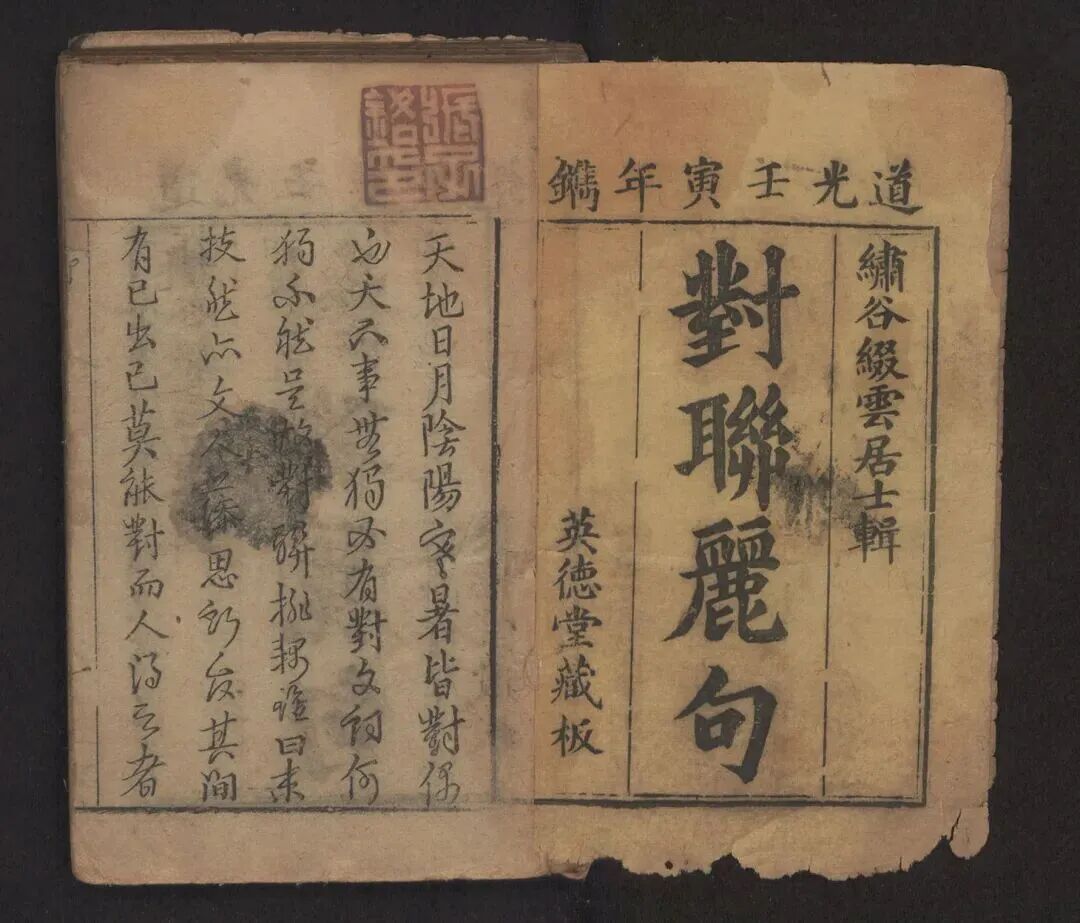 道光壬寅年鐫
繡谷綴雲居士輯
對聯麗句
英德堂藏板
天地日月陰陽寒暑皆對偶
也天下事無獨必有對文詞何
獨不然是故對聯排耦雖曰末
技然亦文人深思所及其間
有己出己莫能對而人得之者